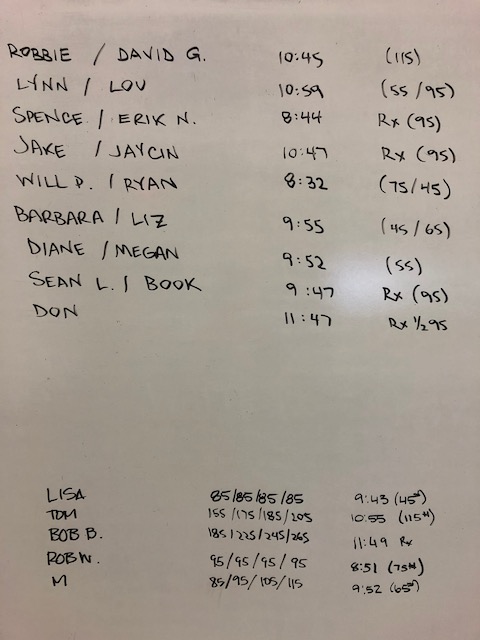 ROBBIE / DAVID G. 10:45 (115)
LYNN / LOU 10:59 (55/95)
SPENCE / ERIK N. 8:44 Rx (95)
JAKE / JAYCIN 10:47 Rx (95)
WILL P. / RYAN 8:32 (75/45)
BARBARA / LIZ 9:55 (45/65)
DIANE / MEGAN 9:52 (55)
SEAN L. / BOOK 9:47 Rx (95)
DON 11:47 Rx 1/2 95
LISA 85/85/85/85 9:43 (45#)
TOM 155/175/185/205 10:55 (115#)
BOB B. 185/225/245/265 11:49 Rx
ROB W. 95/95/95/95 8:51 (75#)
M 85/95/105/115 9:52 (65#)